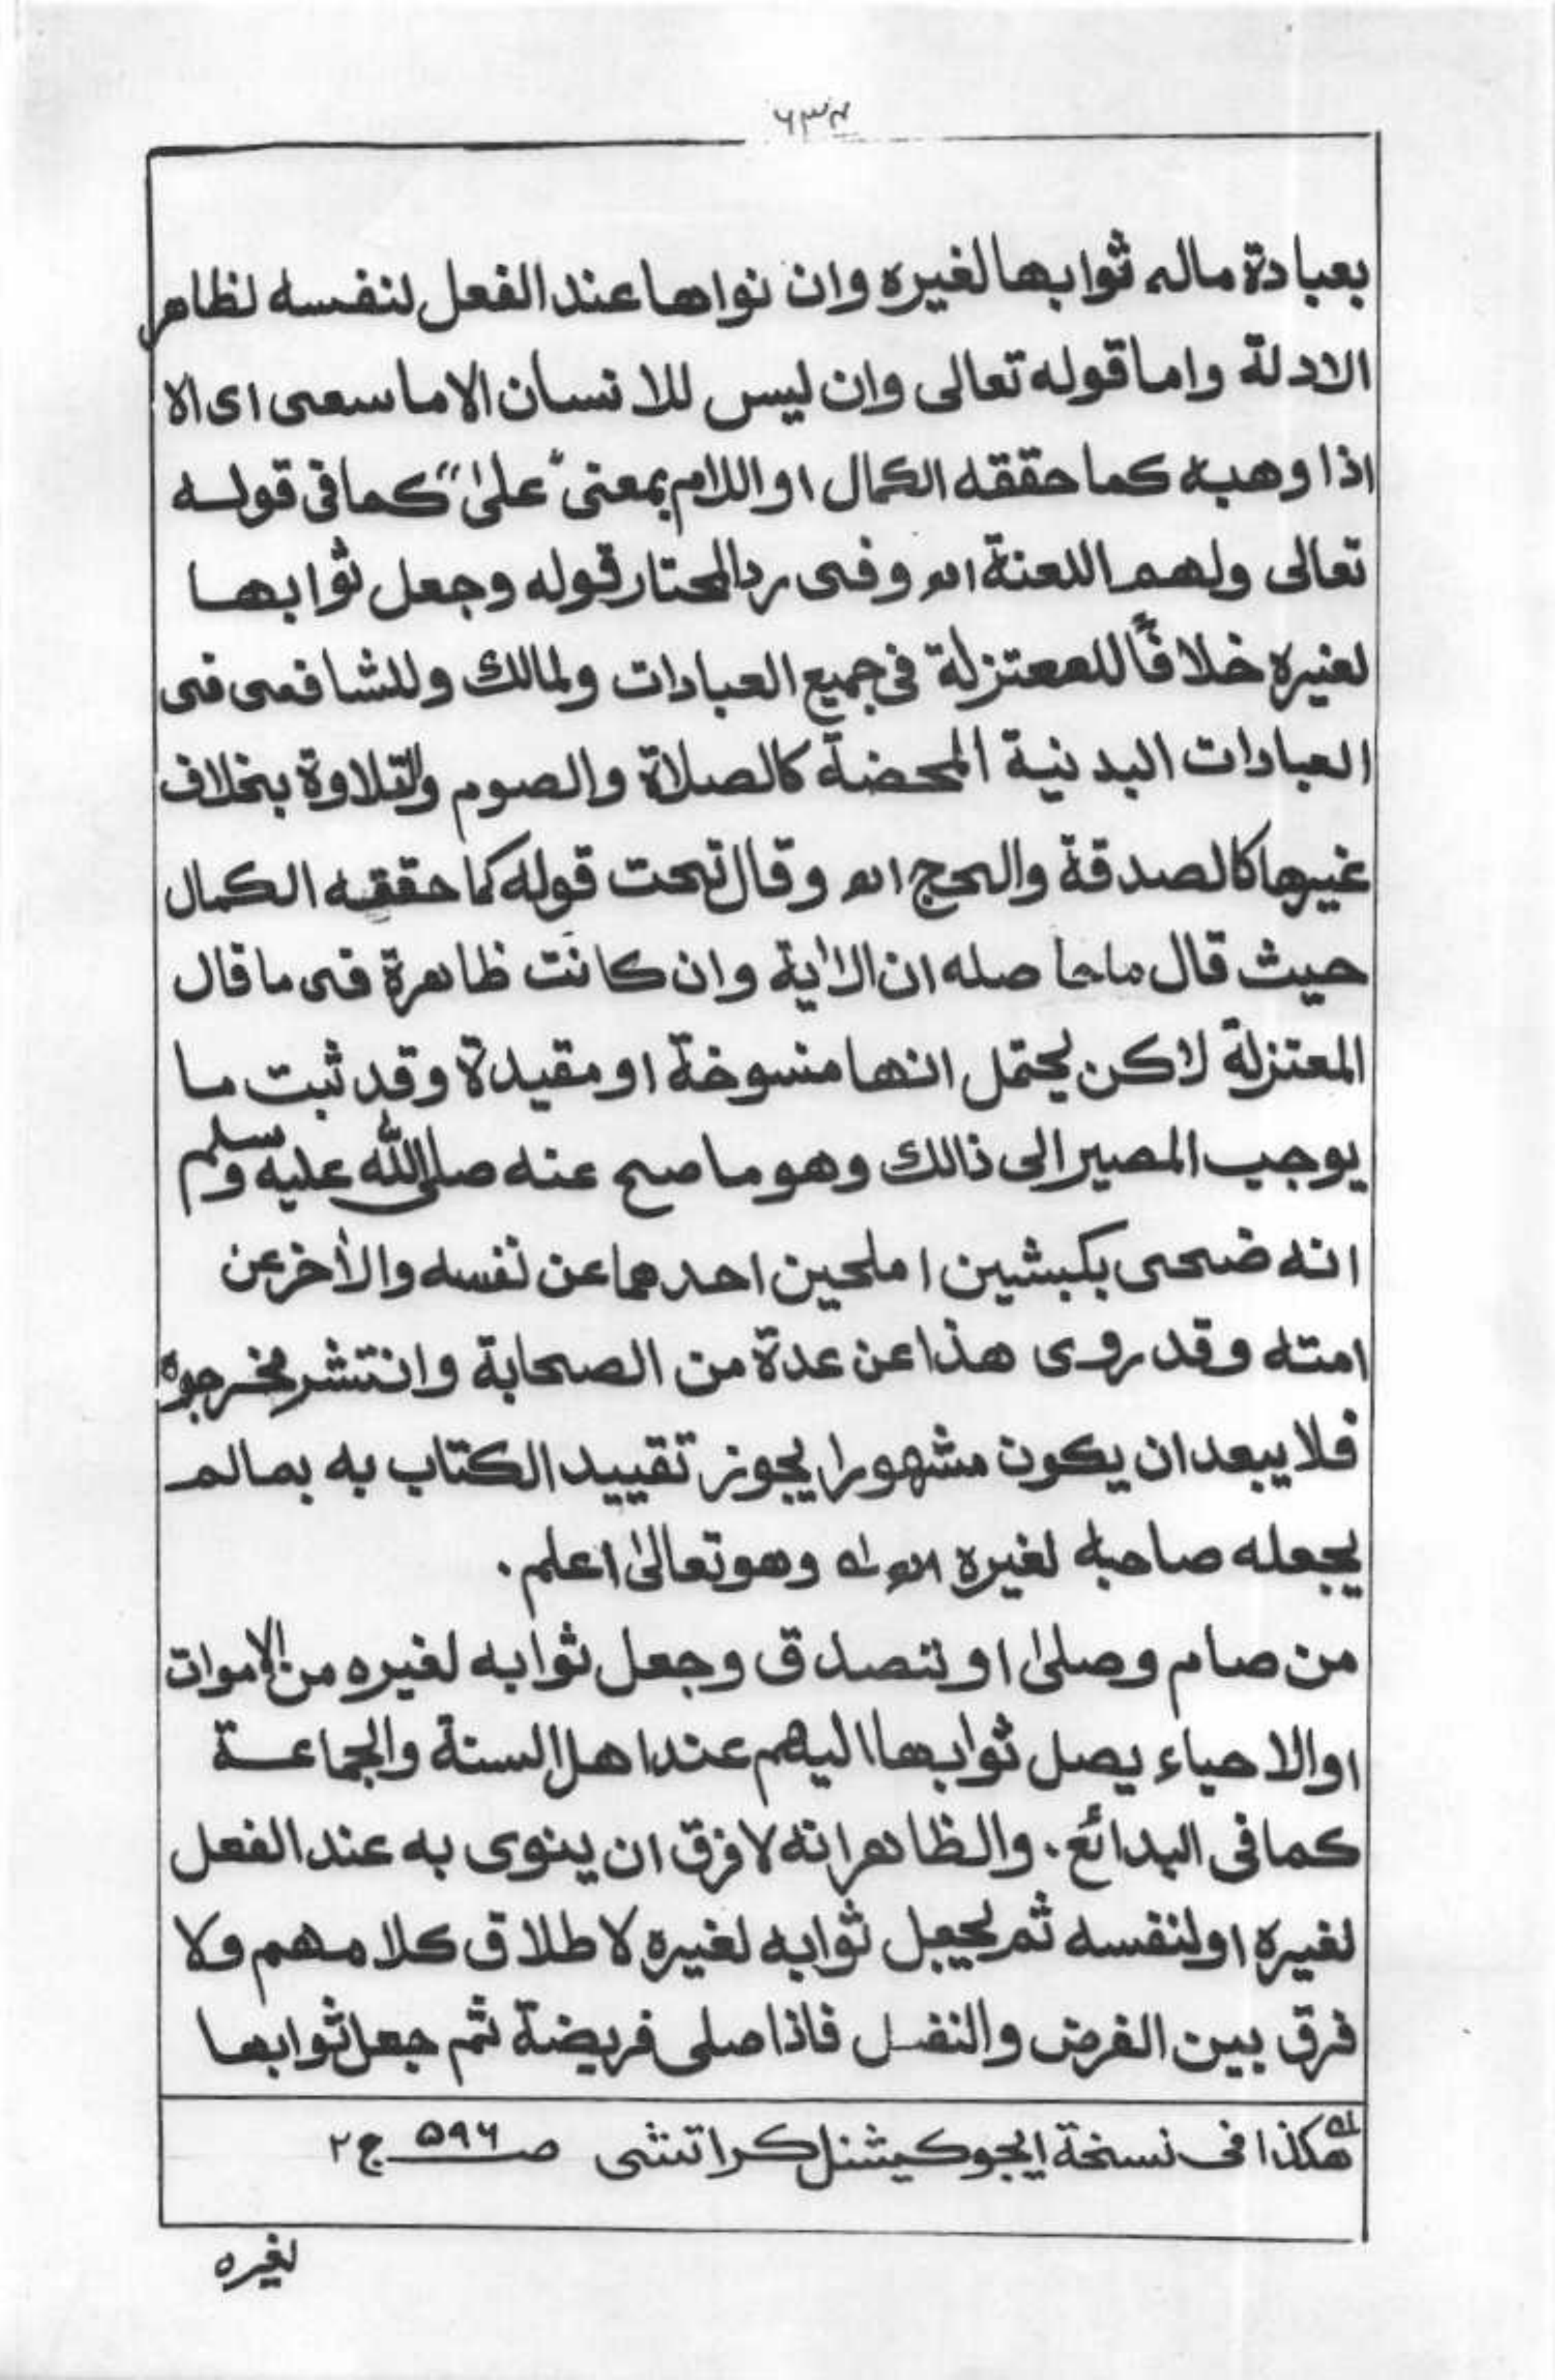 ۶۳۴
بعبادة ماله ثوابها لغيره وان نواها عند الفعل لنفسه لظاهر
الادلة واما قوله تعالى وان ليس للانسان الا ما سعى اى الا
اذا وهبه كما حققه الكمال او اللام بمعنى "على" كما فى قوله
تعالى ولهم اللعنة اھ وفى رد المحتار قوله وجعل ثوابها
لغيره خلافاً للمعتزلة فى جميع العبادات ولمالك وللشافعى فى
العبادات البدنية المحضة كالصلاة والصوم والتلاوة بخلاف
غيرها كالصدقة والحج اھ وقال تحت قوله كما حققه الكمال
حيث قال ما حاصله ان الاٰية وان كانت ظاهرة فى ما قال
المعتزلة لاكن يحتمل انها منسوخة او مقيدة وقد ثبت ما
يوجب المصير الى ذالك وهو ما صح عنه صلى الله عليه وسلم
انه ضحى بكبشين املحين احدهما عن نفسه والاٰخر عن
امته وقد روى هذا عن عدة من الصحابة وانتشر مخرجوه
فلا يبعد ان يكون مشهورا يجوز تقييد الكتاب به بمالم
يجعله صاحبه لغيره اھ لہ وهو تعالىٰ اعلم.
من صام وصلىٰ او تصدق وجعل ثوابه لغيره من الاموات
او الاحياء يصل ثوابها اليهم عند اهل السنة والجماعة
كما فى البدائع. والظاهر انه لا فرق ان ينوى به عند الفعل
لغيره او لنفسه ثم يجعل ثوابه لغيره لاطلاق كلامهم ولا
فرق بين الفرض والنفل فاذا صلى فريضة ثم جعل ثوابها
لہ هكذا فى نسخة ايجوكيشنل كراتشى صـ ۵۹۶ ج ۲
لغيره